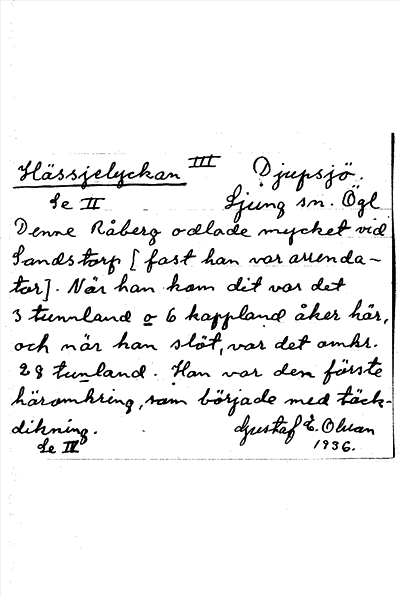 Hässjelyckan III Djupsjö.
Se II Ljung sn. Ögl
Denne Råberg odlade mycket vid
Sandstorp [fast han var arrenda-
tor]. När han kom dit var det
3 tunnland o 6 kappland åker här,
och när han slöt, var det omkr.
28 tunland. Han var den förste
häromkring, som började med täck-
dikning. Gustaf E. Olsson
Se IV 1936.